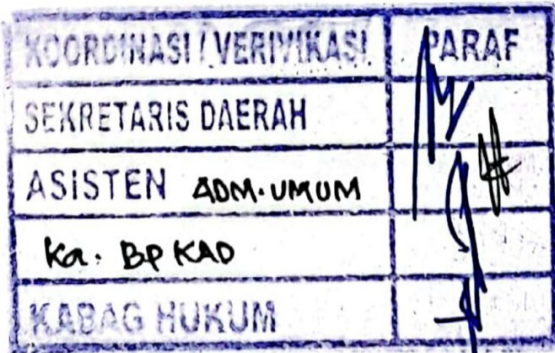 KOORDINASI / VERIVIKASI PARAF
SEKRETARIS DAERAH
ASISTEN ADM. UMUM
Ka. BPKAD
KABAG HUKUM